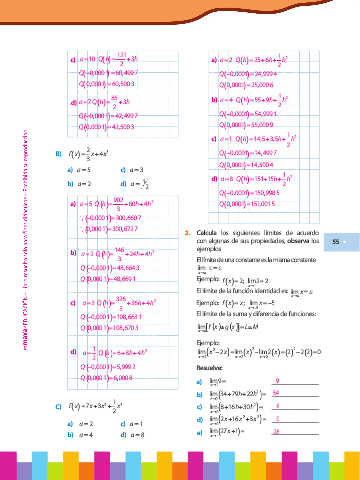 c) a=10 Q(h)=121/2+3h
Q(-0,0001)=60,4997
Q(0,0001)=60,5003
d) a=7 Q(h)=85/2+3h
Q(-0,0001)=42,4997
Q(0,0001)=42,5003
B) f(x)=2/3x+4x³
a) a=5 c) a=3
b) a=2 d)
a) a=5 Q(h)=902/3+60h+4h²
(-0,0001)=300,6607
(0,0001)=300,6727
b) a=2 Q(h)=146/3+24h+4h²
Q(-0,0001)=48,6643
Q(0,0001)=48,6691
c) a=3 Q(h)=326/3+36h+4h²
Q(-0,0001)=108,6631
Q(0,0001)=108,6703
d) Q(h)=
Q(-0,0001)=5,9992
Q(0,0001)=6,0008
C) f(x)=7x+3x²+1/2x³
a) a=2 c) a=1
b) a=4 d) a=8
a) a=2 Q(h)=25+6h+1/2h²
Q(-0,0001)=24,9994
Q(0,0001)=25,0006
b) a=4 Q(h)=55+9h+1/2h²
Q(-0,0001)=54,9991
Q(0,0001)=55,0009
c) a=1 Q(h)=14,5+3,5h+1/2h²
Q(-0,0001)=14,4997
Q(0,0001)=14,5004
d) a=8 Q(h)=151+15h+1/2h²
Q(-0,0001)=150,9985
Q(0,0001)=151,0015
2. Calcula los siguientes límites de acuerdo
con algunas de sus propiedades, observa los
ejemplos
El límite de una constante es la misma constante
lim c=c
Ejemplo: f(x)=2; lim 2=2
El límite de la función identidad es: lim x=a
Ejemplo: f(x)=x; lim x=-5
El límite de la suma y diferencia de funciones:
lim[f(x)±g(x)]=L±M
Ejemplo:
lim(x²-2x)=lim(x)²-lim2(x)=(2)²-2(2)=0
Resuelve:
a) lim 9= 9
b) lim(34+79h+22h²)= 34
c) lim(8+16h+30h²)= 8
d)
e) lim(27x+1)= 28
55